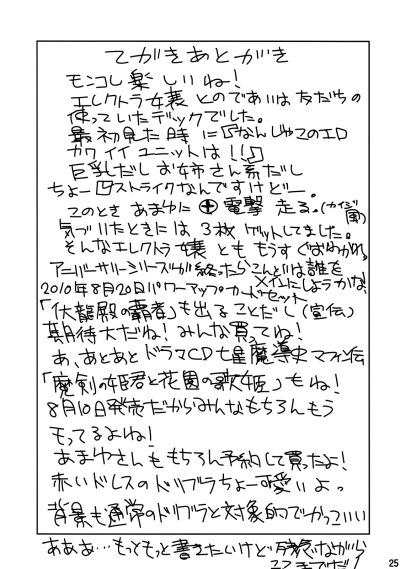 てがきあとがき
モンコレ楽しいね!
エレクトラ嬢とのであいは友だちの
使っていたデックでした。
最初見た時に『なんじゃこのエロ
カワイイユニットは!!』
巨乳だしお姉さん系だし
ちょーストライクなんですけどー。
このときあまゆに電撃走る。(カイジ風)
気づいたときには3枚ゲットしてました。
そんなエレクトラ嬢とももうすぐおわかれ。
アニバーサリーシリーズが終ったらこんどは誰を
メインにしようかな?
2010年8月20日パワーマップカードセット
「伏龍殿の覇者」も出ることだし(宣伝)
期待大だね!みんな買ってね!
あ、あとあとドラマCD七星魔導史マフィン伝
「魔剣の姫君と花園の歌姫」もね!
8月10日発売だからみんなもちろんもう
モってるよね!
あまゆさんももちろん予約して買ったよ!
赤いドレスのドリブラちょー可愛いよっ
背景も通常のドリブラと対象的でかっこいい
あああ…もっともっと書きたいけど残念ながら
ココまでだ!
25